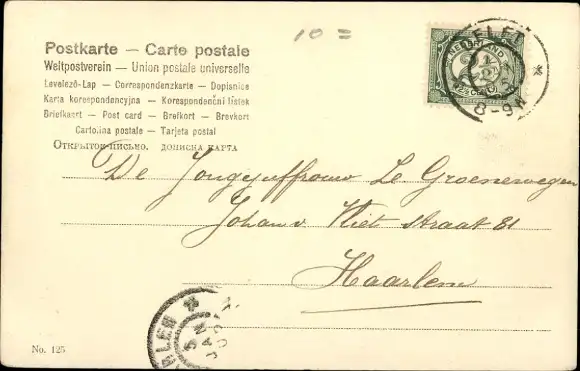 10 =
Postkarte — Carte postale
Weltpostverein — Union postale universelle
Levelező-Lap — Correspondenzkarte — Dopisnice
Karta korespondencyjna — Korespondenční lístek
Briefkaart — Post card — Brefkort — Brevkort
Cartolina postale — Tarjeta postal
Открытое письмо. дописна карта
NEDERLAND
2½
2½ CENT
DELFT
8-9 N
De Jongejuffrouw Le Groenewegen
Johan v. Vliet straat 81
Haarlem
No. 125